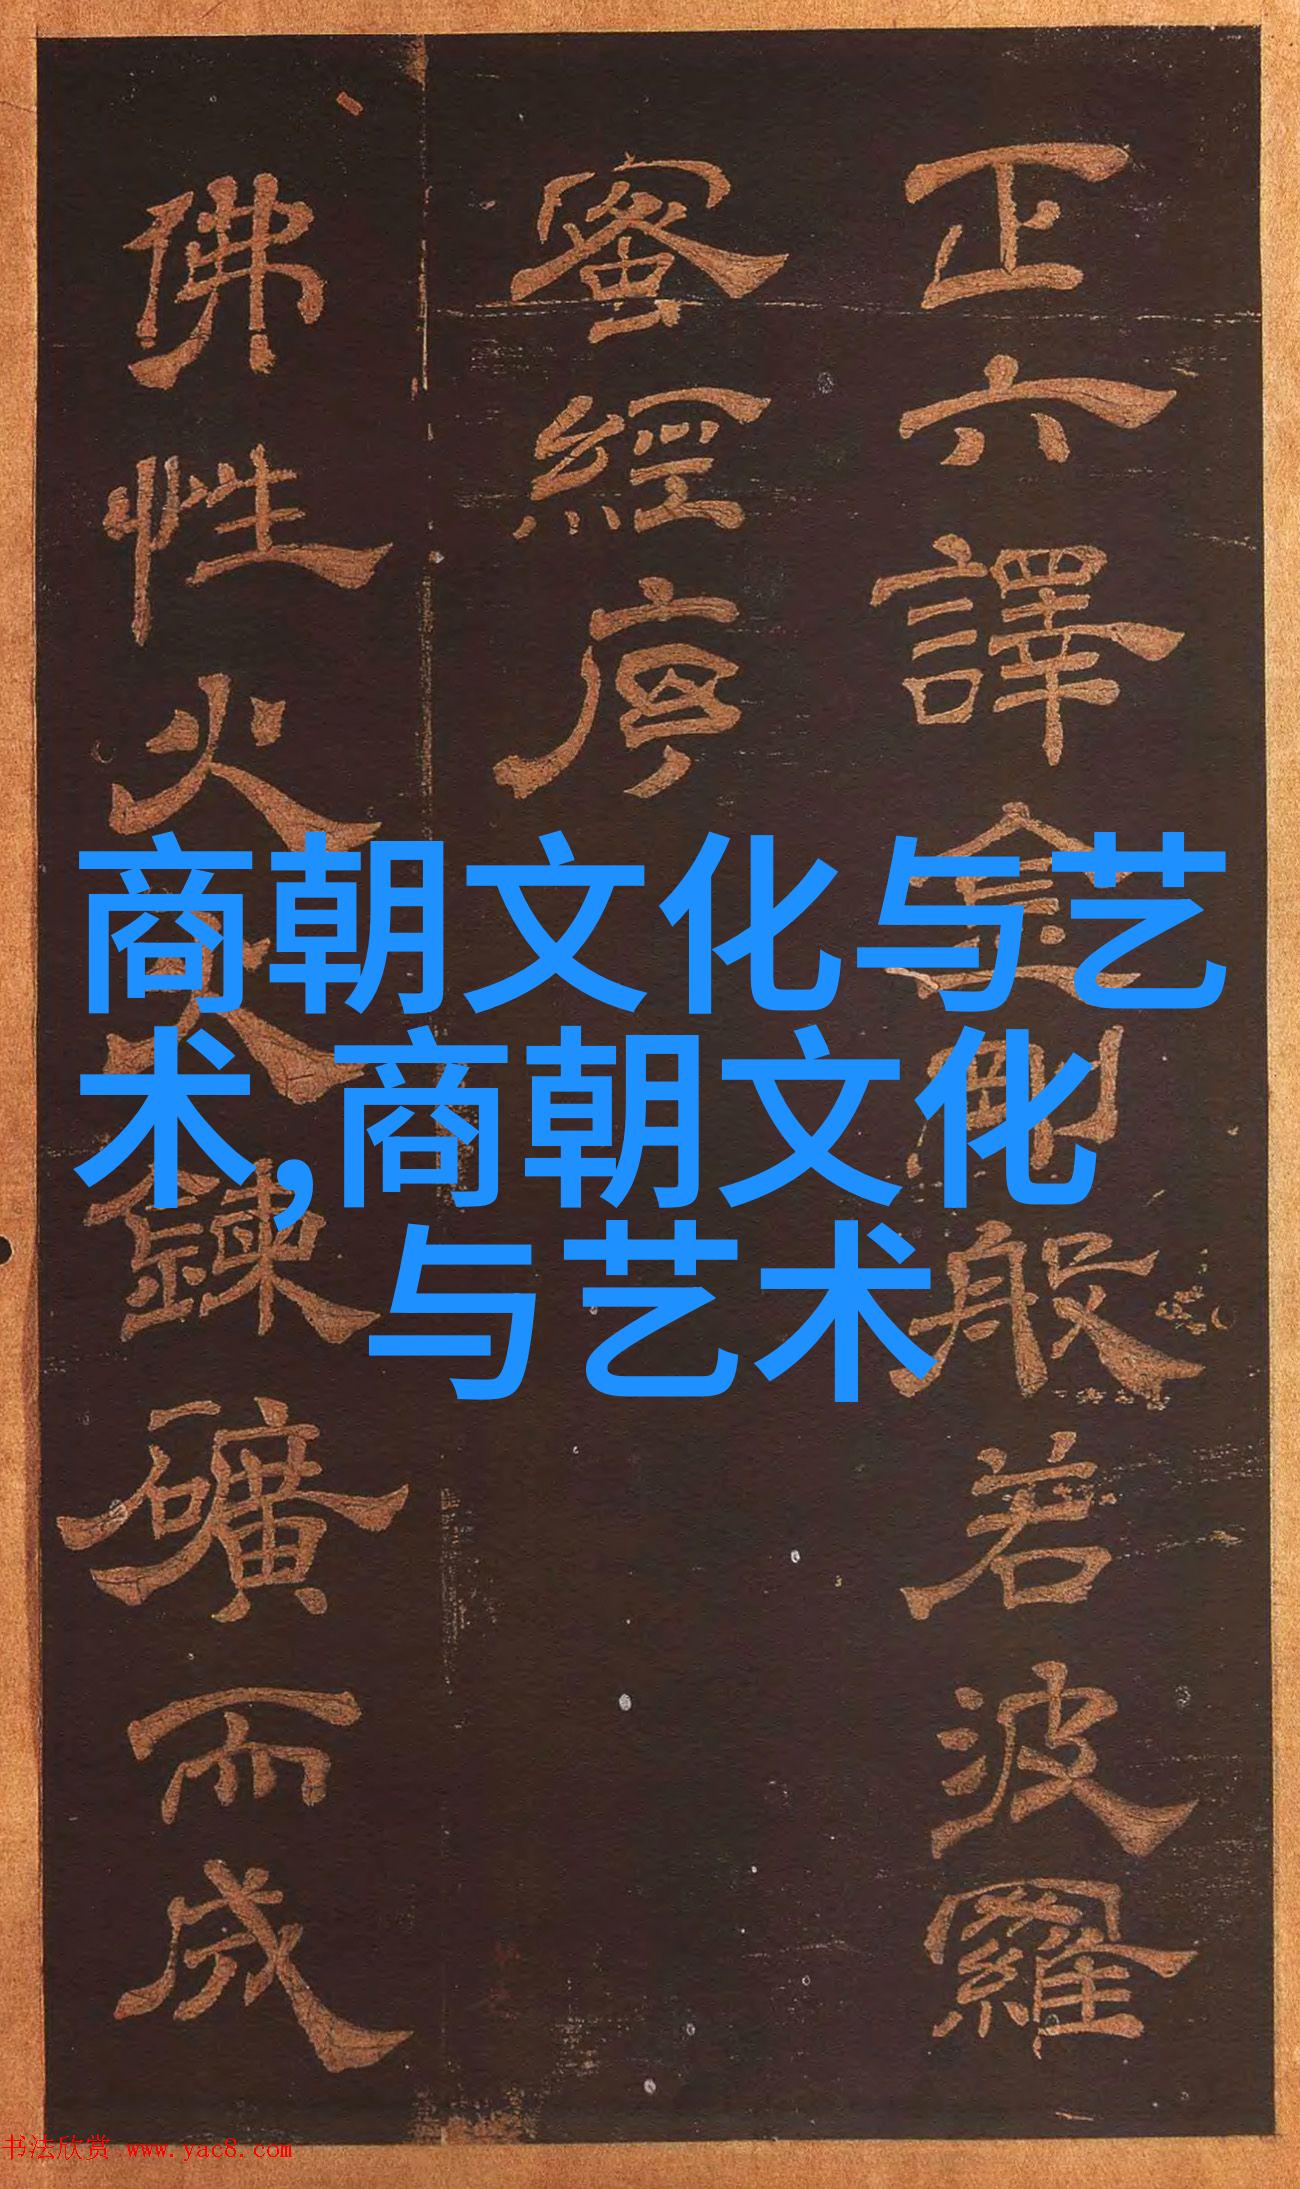 正六譯金剛般若波羅
蜜經序
佛性火鍊礦而成
商朝文化与艺
术,商朝文化
与艺术
书法欣赏 www.yac8.com